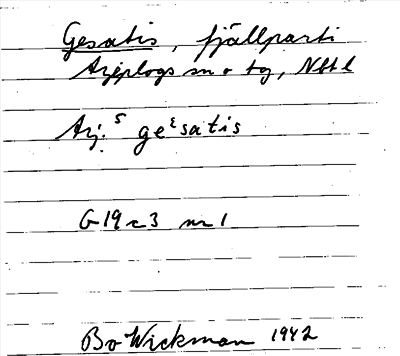 Gesatis, fjällparti
Arjeplogs sn o tg, Nbtl
Arj. s geɛsatis
G 19 c 3 nr 1
Bo Wickman 1942